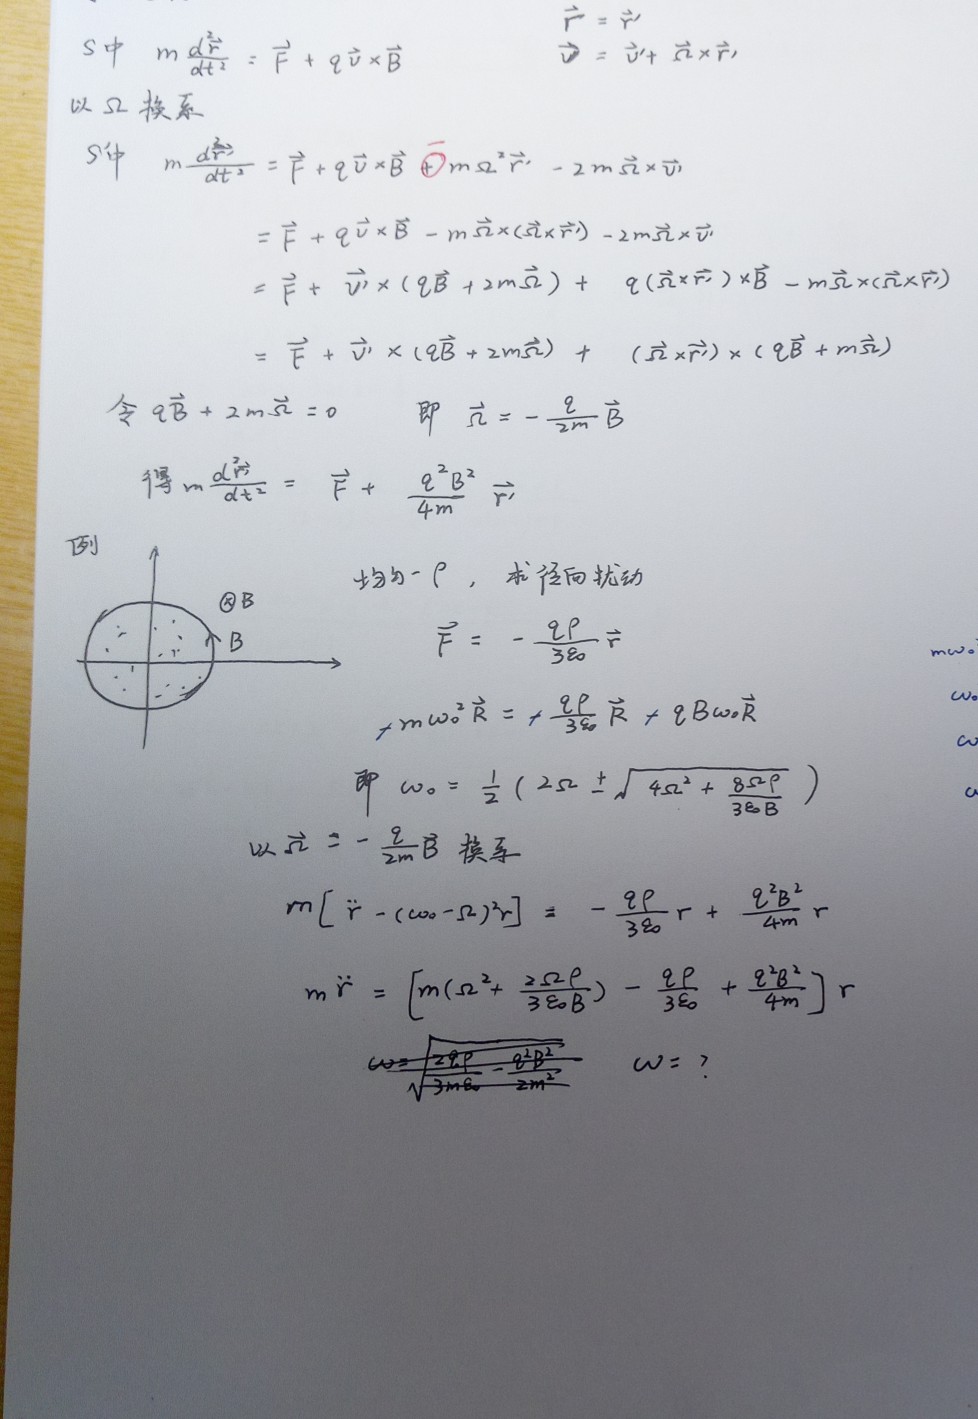 r⃗ = r⃗'
S中 m d²r⃗/dt² = F⃗ + qv⃗×B⃗
v⃗ = v⃗' + Ω⃗×r⃗'
以 Ω 换系
S'中 m d²r⃗'/dt² = F⃗ + qv⃗×B⃗ - mΩ²r⃗' - 2mΩ⃗×v⃗'
= F⃗ + qv⃗×B⃗ - mΩ⃗×(Ω⃗×r⃗') - 2mΩ⃗×v⃗'
= F⃗ + v⃗'×(qB⃗ + 2mΩ⃗) + q(Ω⃗×r⃗')×B⃗ - mΩ⃗×(Ω⃗×r⃗')
= F⃗ + v⃗'×(qB⃗ + 2mΩ⃗) + (Ω⃗×r⃗')×(qB⃗ + mΩ⃗)
令 qB⃗ + 2mΩ⃗ = 0 即 Ω⃗ = - q/2m B⃗
得 m d²r⃗'/dt² = F⃗ + q²B²/4m r⃗'
例
均匀-ρ , 求径向扰动
⊗B
B
F⃗ = - qρ/3ε₀ r⃗
mω₀
-mω₀²R⃗ = - qρ/3ε₀ R⃗ - qBω₀R⃗
ω₀
ω
即 ω₀ = 1/2 (2Ω ± √(4Ω² + 8Ωρ/3ε₀B))
以 Ω⃗ = - q/2m B⃗ 换系
m[r̈ - (ω₀-Ω)²r] = - qρ/3ε₀ r + q²B²/4m r
mr̈ = [m(Ω² + 2Ωρ/3ε₀B) - qρ/3ε₀ + q²B²/4m] r
ω=√(2qρ/3mε₀ - q²B²/2m²) ω = ?